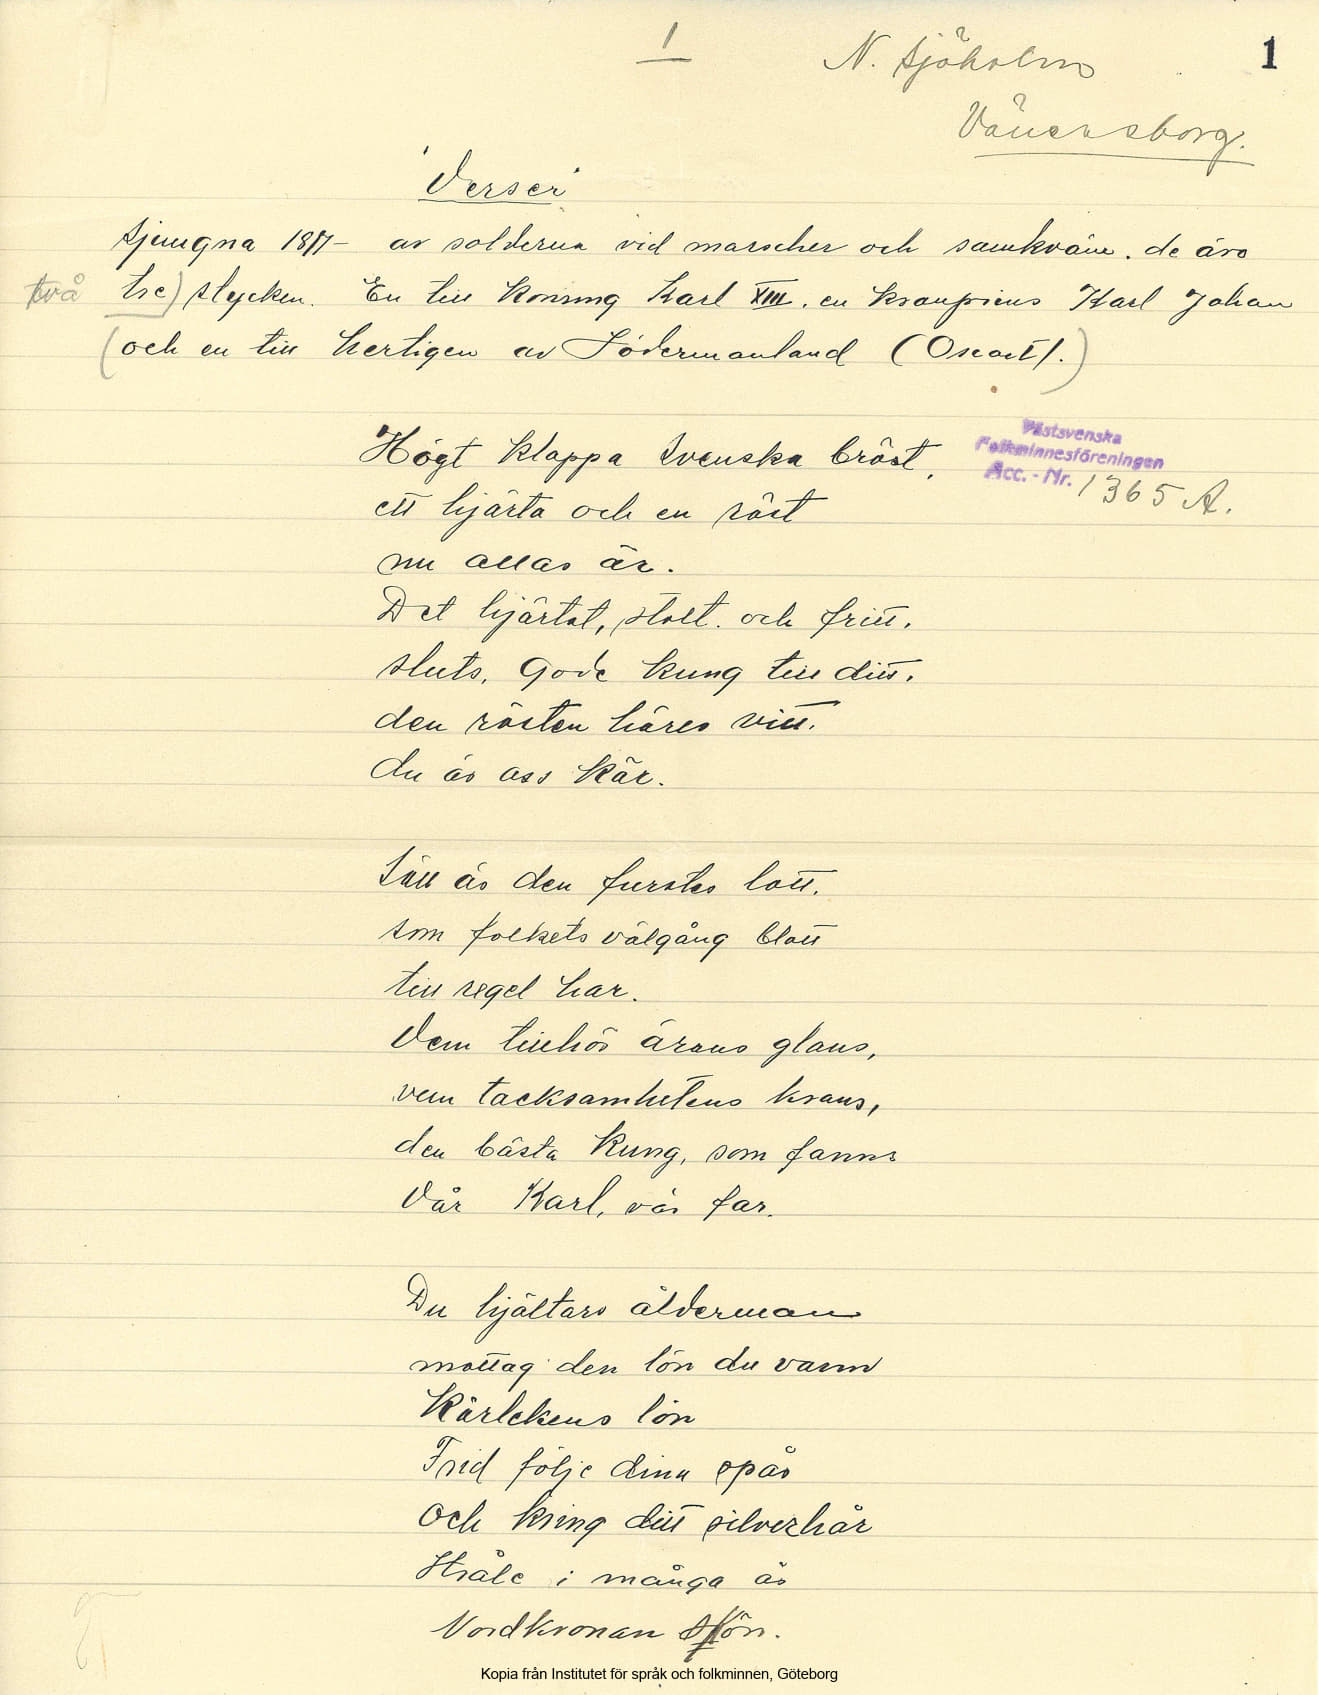 1
N. Sjöholm
1
Vänersborg.
"Verser"
Sjungna 1817- av solderna vid marscher och samkväm. de äro
två tre) stycken. En till konung Karl XIII. en kronprins Karl Johan
(och en till hertigen av Södermanland (Oscar I).)
Högt klappa Svenska bröst,
ett hjärta och en röst
nu allas är.
Det hjärtat, stolt. och fritt.
sluts. Gode kung till ditt.
den rösten höres vitt.
du är oss kär.
Västsvenska
Folkminnesföreningen
Acc. - Nr. 1365 A.
Säll är den furstes lott.
som folkets välgång blott
till regel har.
Vem tillhör ärans glans,
vem tacksamhetens krans,
den bästa Kung, som fanns
Vår Karl, vår far.
Du hjältars ålderman
mottag den lön du vann
Kärlekens lön
Frid följe dina spår
och kring ditt silverhår
Stråle i många år
Nordkronan skön.
Kopia från Institutet för språk och folkminnen, Göteborg